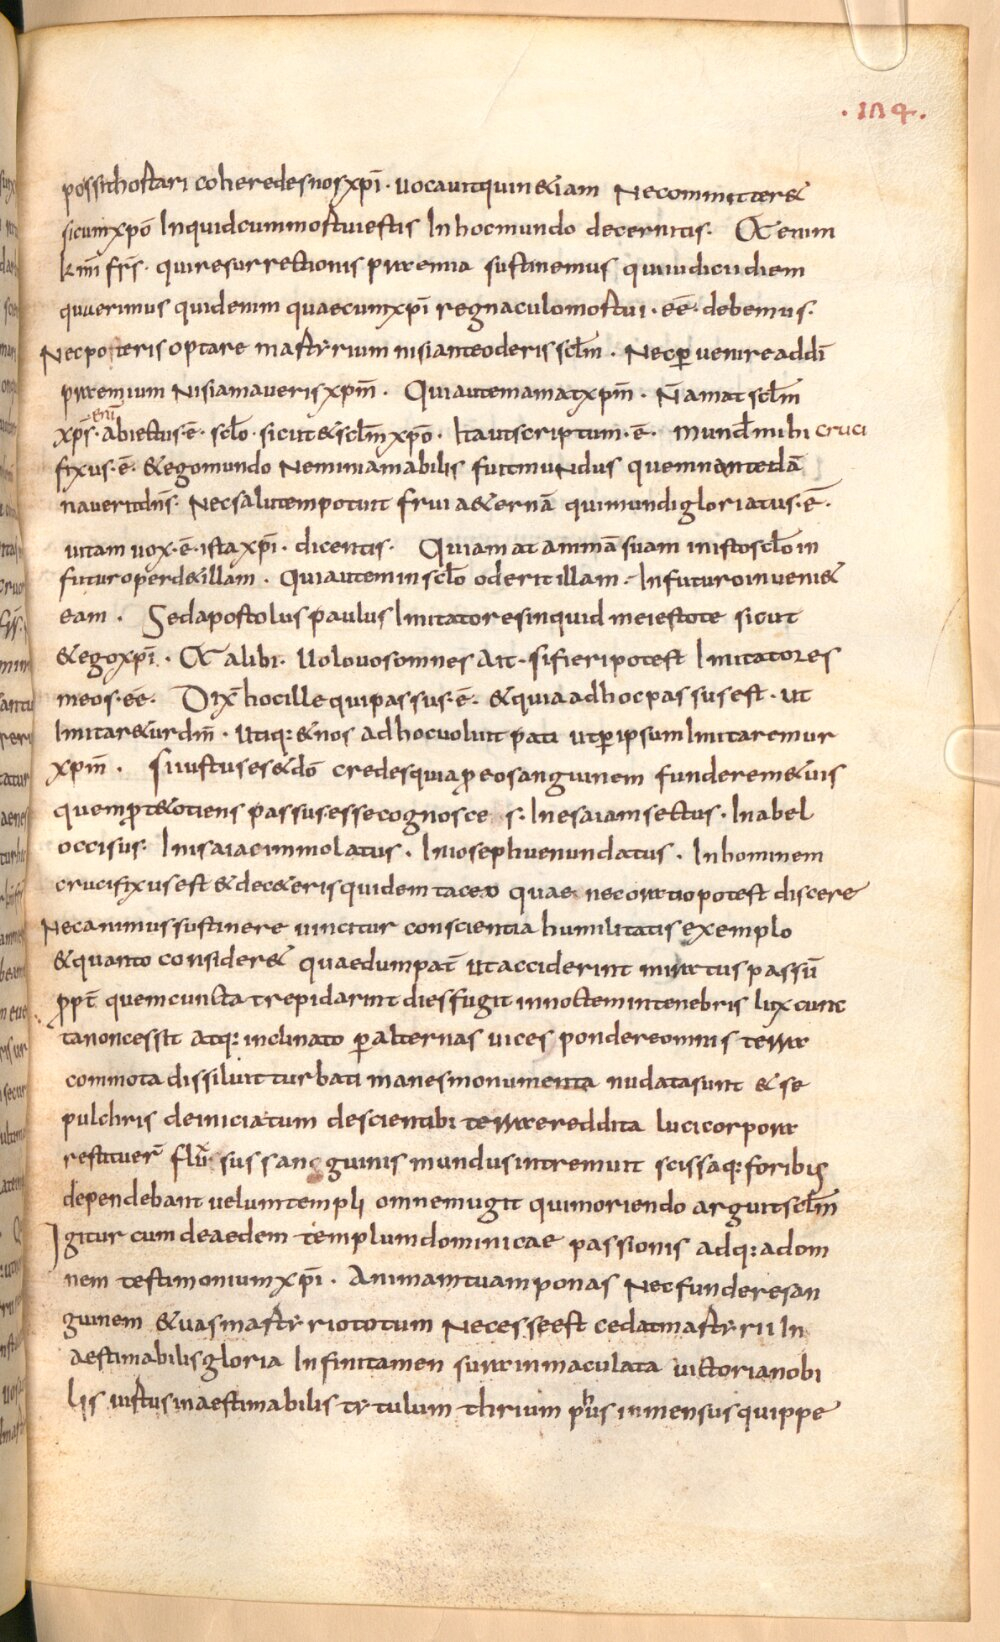 ·184·
possithostari coheredesnosxpī· uocauitquin&iam Necommitter&
sicumxpō Inquidcummostuiestis Inhocmundo decernitis· &enim
kmī frs̄· quiresurrectionis praemia sustinemus quiiudicii diem
quaerimus quidenim quaecumxpī regnaculomostui· eē· debemus·
Necpoteris optare mastyrium nisianteoderis sclm̄· Necꝑuenireaddī
praemium Nisiamaueris xpm̄· Quiautemamatxpm̄· N̄amat sclm̄
xps̄· enī abiectus·ē· sclō· sicut&sclm̄xpō· Itautscriptum·ē· mund̄mihi cruci
fixus·ē· &egomundo Neminiamabilis fuitmuNdus quemnantedā
naueritdns̄· Necsalutempotuit frui a&ernā quimundigloriatus·ē·
uitam uox·ē·ista xpī· dicentis· Quiamat animā suam inistosclō in
futuroperd&illam· Quiauteminsclō oderit illam· Infuturoinueni&
eam· Sedapostolus paulus Imitatoresinquid meiestote sicut
&egoxpī· & alibi· Uolouosomnes Ait· sifieripotest Imitatores
meos·eē· Dix̄ hocille quipassus·ē· &quiaadhocpassusest· ut
Imitar&urdm̄· Utiq: &nos adhocuoluit pati utꝑipsumImitaremur
xpm̄· Siiustuses&dō credesquiaꝓeosanguinem funderem&uis
quemꝓt&otiens passus esse cognosce s· Inesaiamsectus· Inabel
occisus· Inisaiacimmolatus· Iniosephuenundatus· Inhominem
crucifixusest &dec&erisquidem taceo quae necoratiopotest discere
Necanimussustinere uincitur conscientia humilitatis exemplo
&quanto consider& quaedumpat̄ utacciderint miratuspassū
ꝓpt̄ quemcuncta trepidarint diesfugit innoctemintenebris lux cunc
tanoncessit atq: inclinato ꝑalternas uices pondereomnis terra
commota dissiluit turbati manesmonumenta nudatasunt &se
pulchris deiniciatum descientibi terraereddita lucicorpora
restituer̄ flū sus sanguinis mundusintremuit scissaq: foribus
dependebant uelumtempli omnemugit quimoriendo arguitsclm̄
Igitur cum deaedem templumdominicae passionis adq: adom
nem testimoniumxpī· Animamtuamponas Necfunderesan
guinem &uasmastyriototum Necesseest cedatmastyrii In
aestimabilisgloria Infinitamen surainmaculata uictorianobi
lis uirtusinaestimabilis tytulum thrium phus inmensusquippe